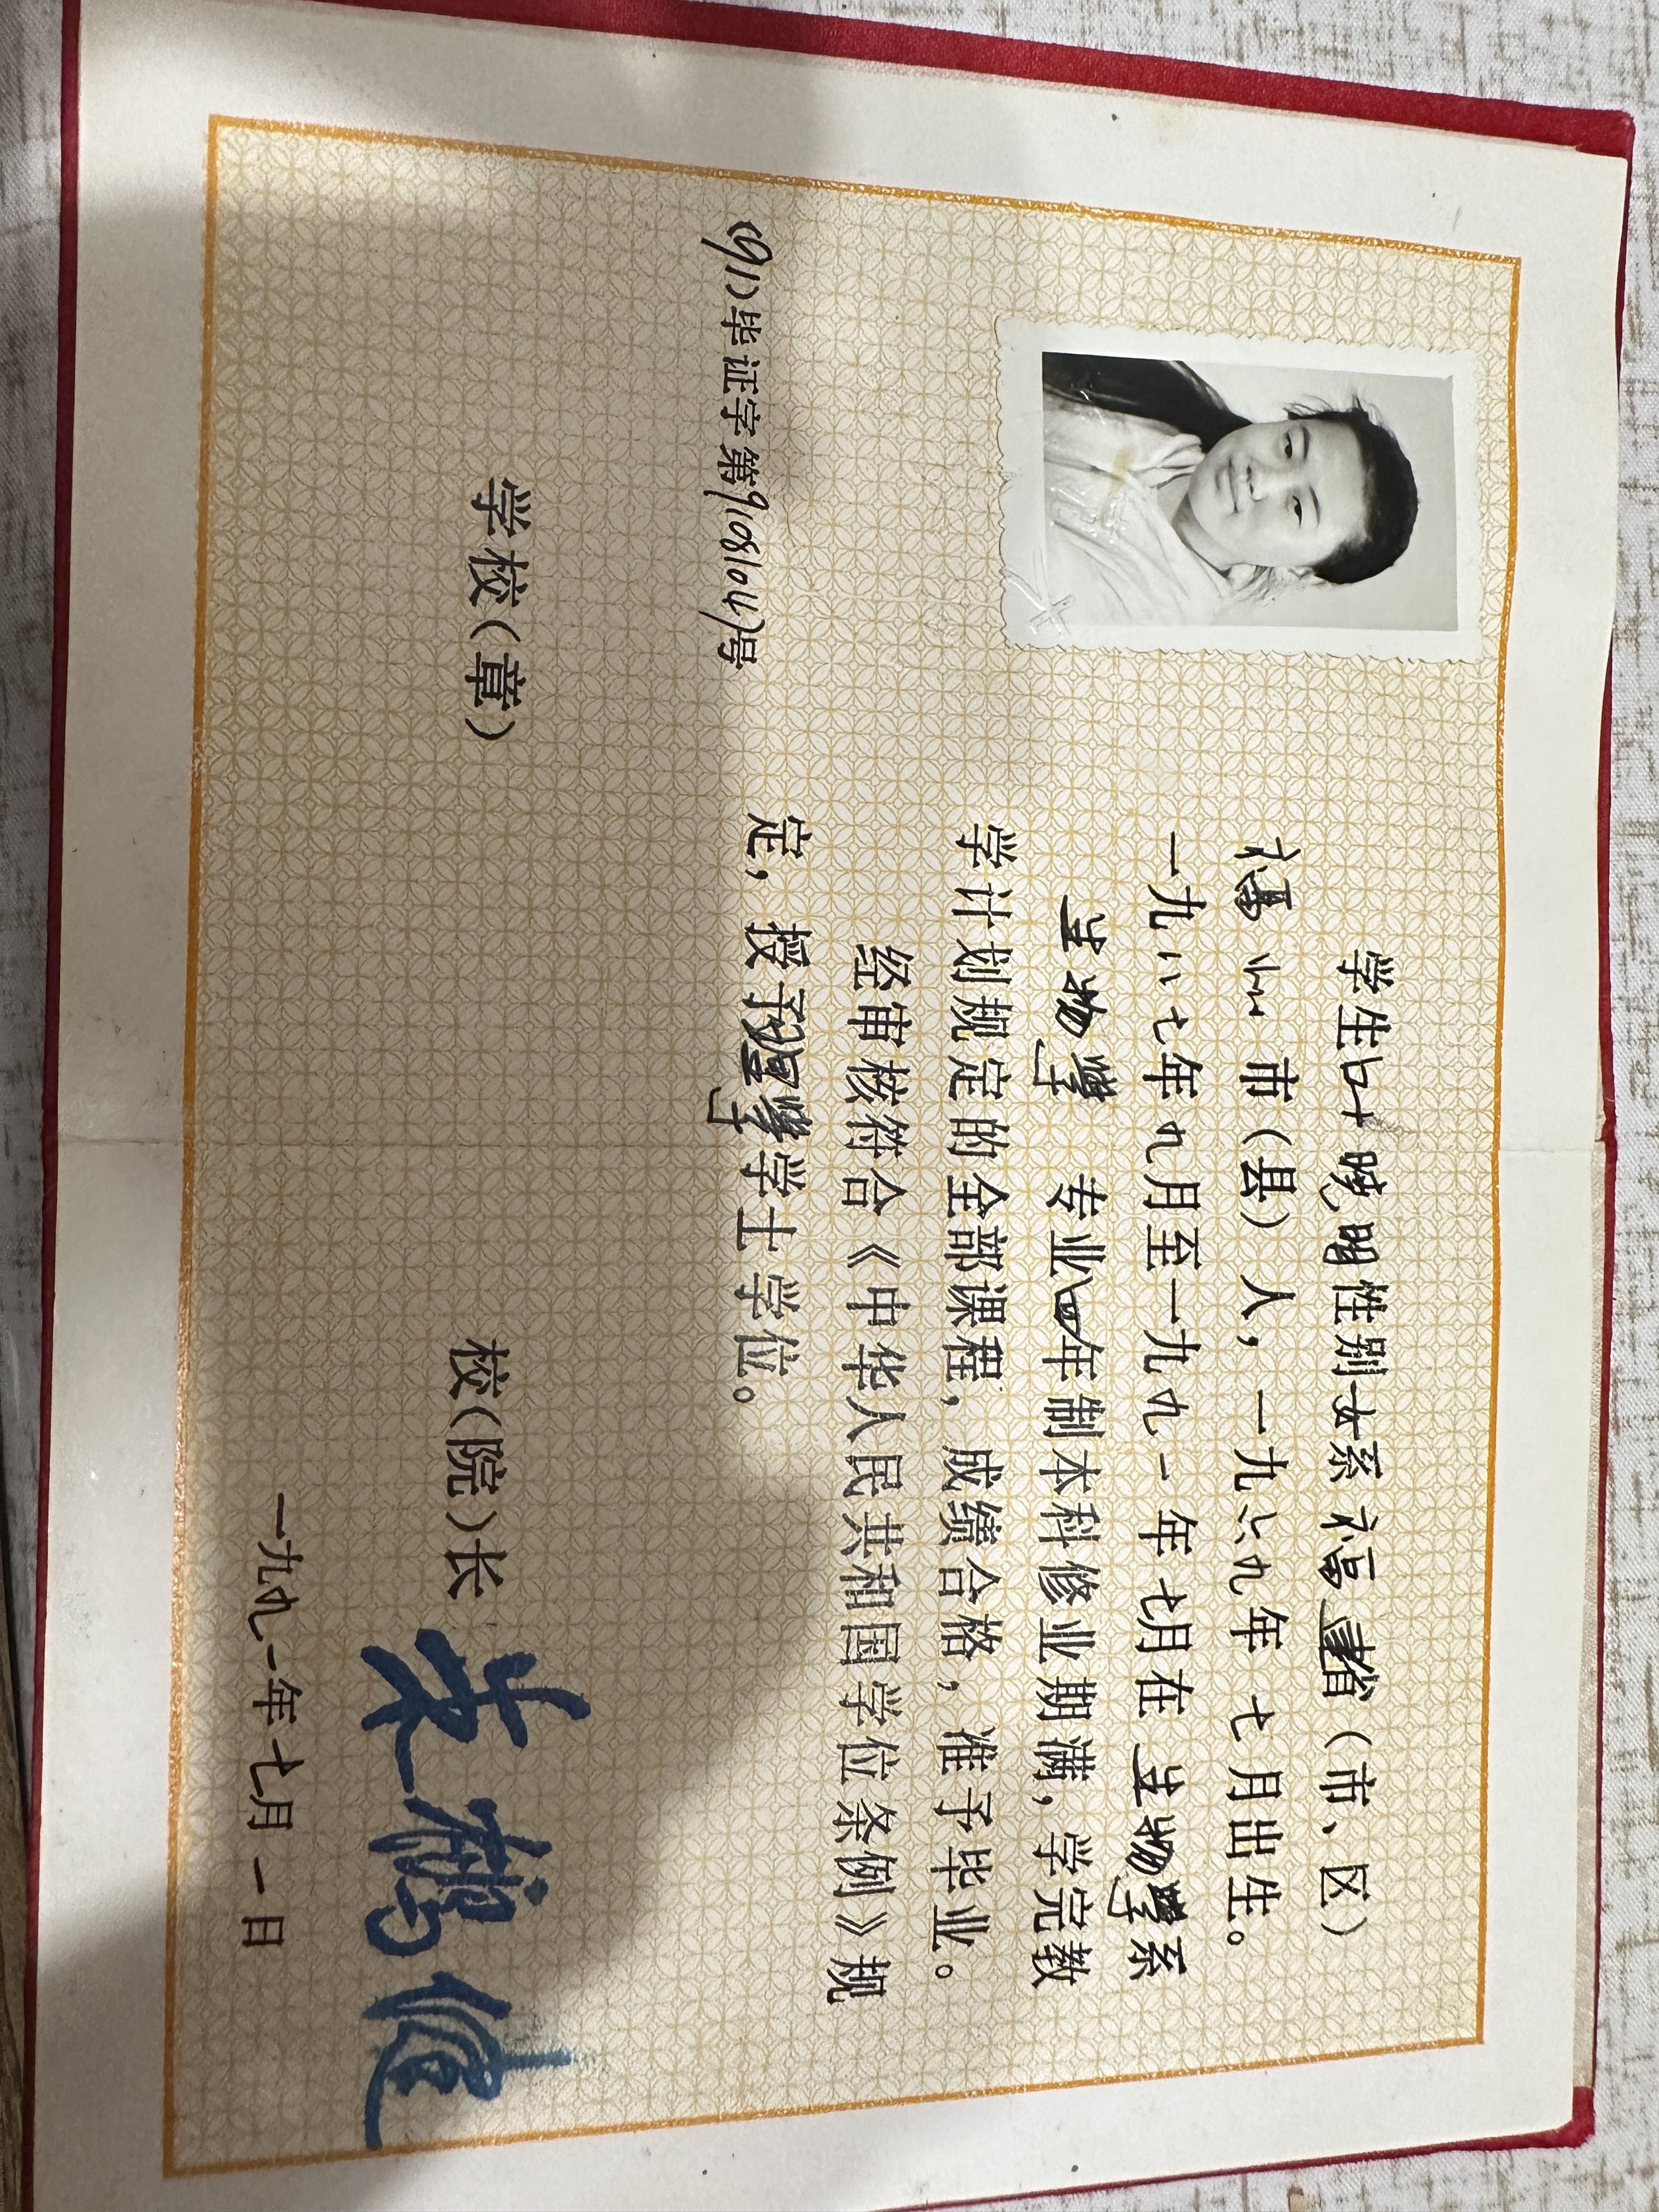 学生叶晓明性别女系福建省(市、区)
福州市(县)人,一九六九年七月出生。
一九八七年九月至一九九一年七月在生物学系
生物学专业四年制本科修业期满,学完教
学计划规定的全部课程,成绩合格,准予毕业。
经审核符合《中华人民共和国学位条例》规
定,授予理学学士学位。
(91)毕证字第9108104号
学校(章)
校(院)长
一九九一年七月一日